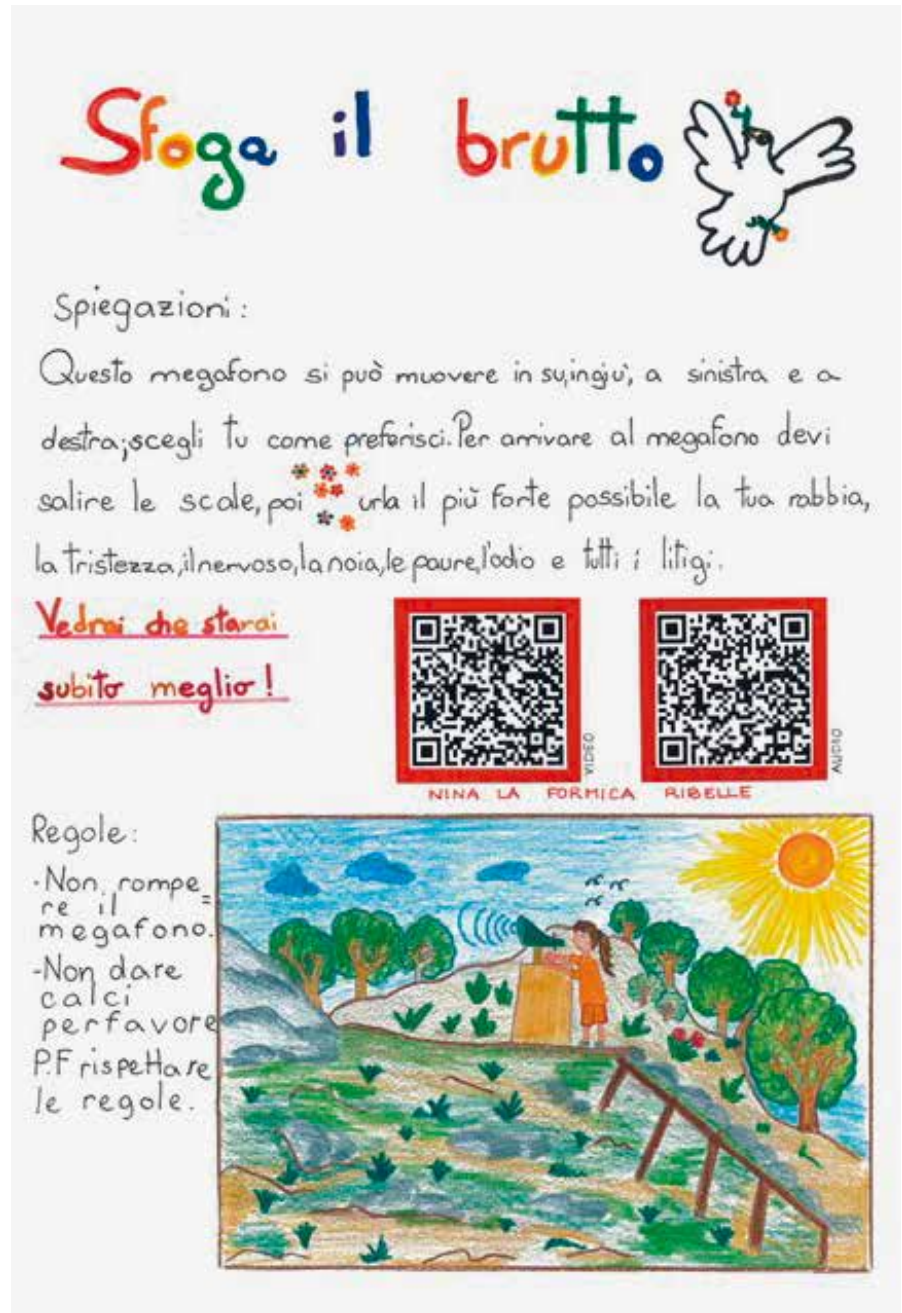 Sfoga il brutto
Spiegazioni:
Questo megafono si può muovere in su,ingiù, a sinistra e a
destra;scegli tu come preferisci.Per arrivare al megafono devi
salire le scale, poi urla il più forte possibile la tua rabbia,
la tristezza,ilnervoso,lanoia,le paure,l'odio e tutti i litigi.
Vedrai che starai
subito meglio!
VIDEO
AUDIO
NINA LA FORMICA RIBELLE
Regole:
·Non rompe=
re il
megafono.
-Non dare
calci
perfavore
P.F rispettare
le regole.